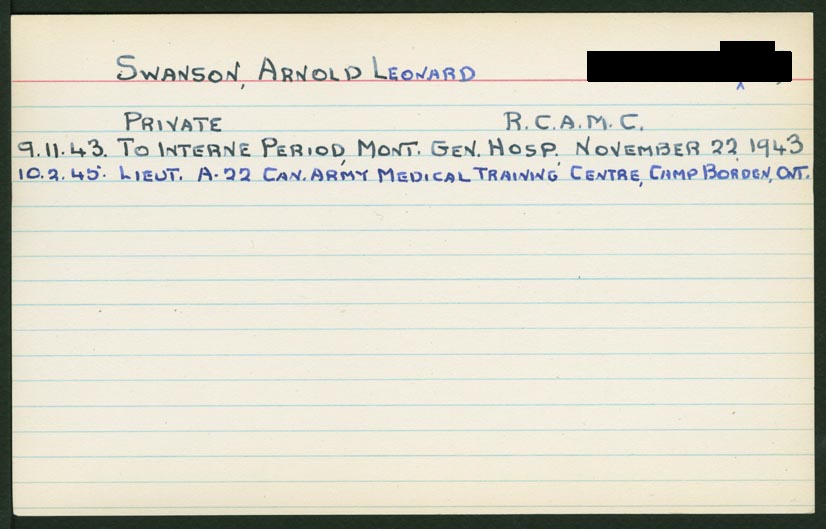 SWANSON, ARNOLD LEONARD
PRIVATE R.C.A.M.C.
9.11.43. TO INTERNE PERIOD, MONT. GEN. HOSP. NOVEMBER 22, 1943
10.2.45. LIEUT. A-22 CAN. ARMY MEDICAL TRAINING CENTRE, CAMP BORDEN, ONT.